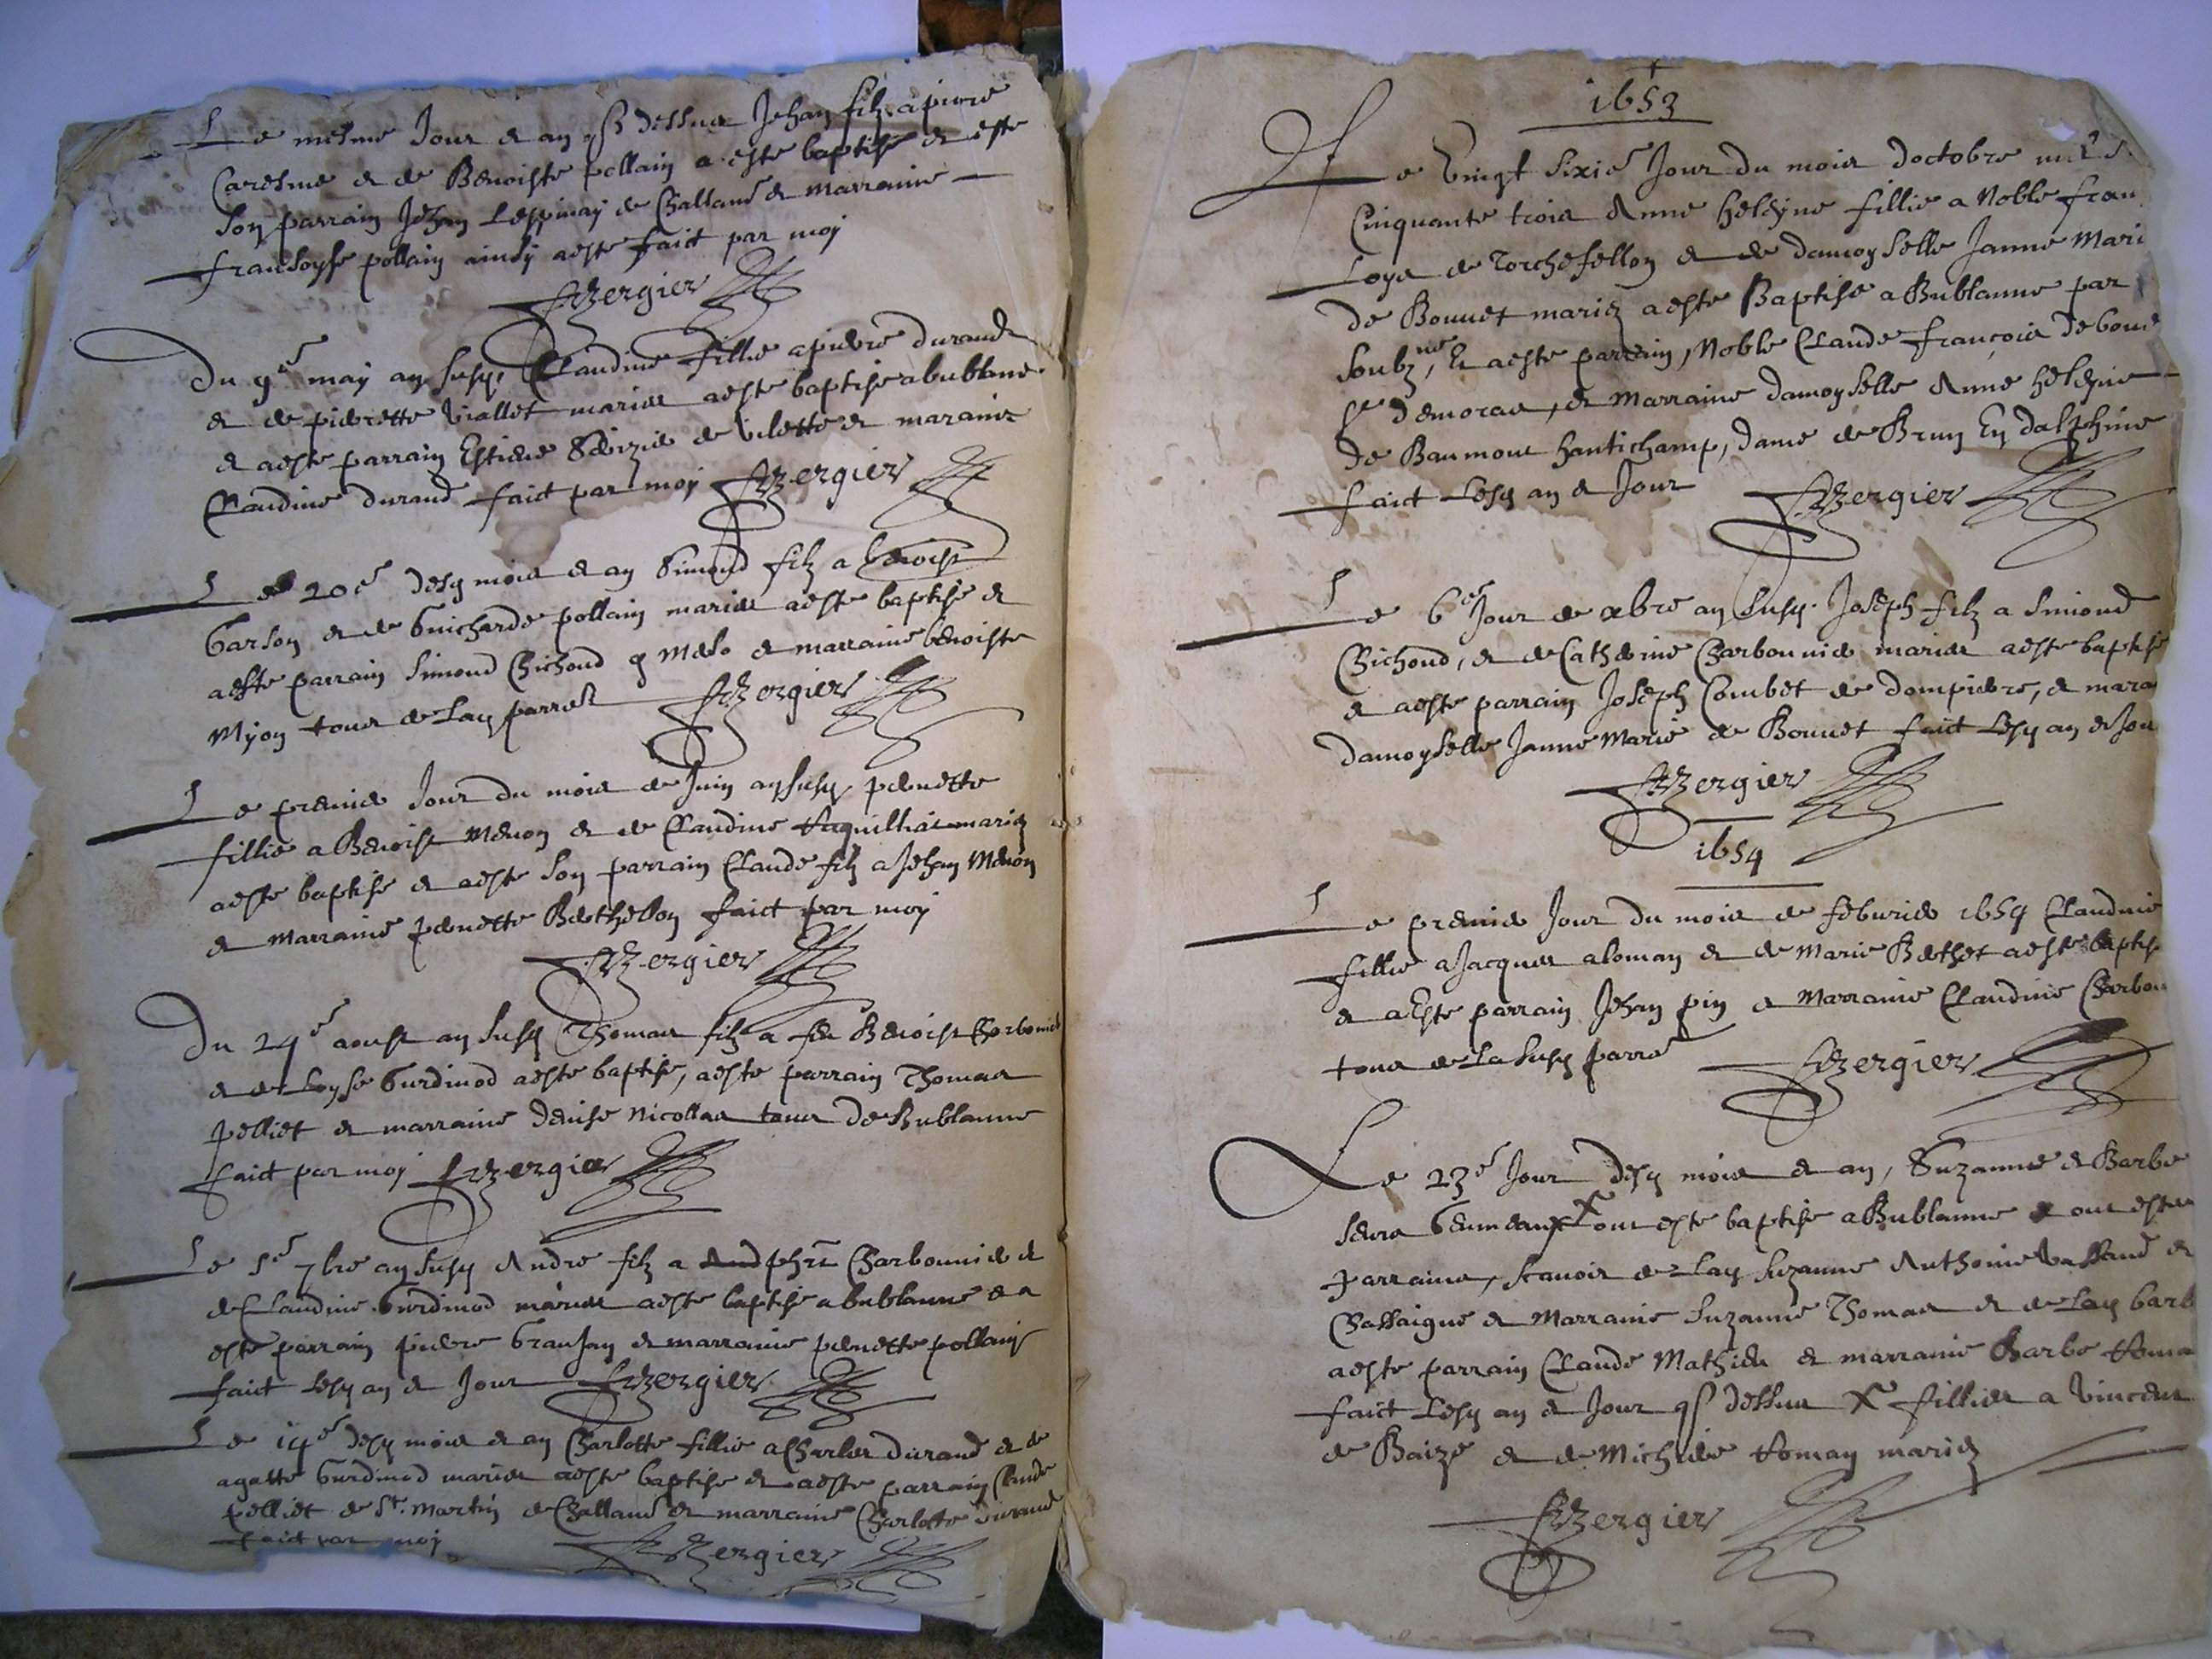 Le mesme Jour & an dessus Jehan filz a piere
Caresme & de Benoiste pollain a este baptise & este
son parrain Jehan Lespinay de Challand & marraine
fransoyse pollain ainsy aeste faict par moy
Bergier
Du 9e may an susq Claudine fillie a pierre durand
& de pierette Viallet maries aeste baptise a bublane
& aeste parrain Estiene de Vilette & maraine
Claudine durand faict par moy Bergier
Le 20e desq mois & an Simond filz a benoist
Garson & de Guicharde pollain maries aeste baptise &
aeste parrain Simond Chichoud & marraine benoiste
Myon tous de Laq parre Bergier
Le premie Jour du mois de Juin an susq pernette
fillie a Benoist Meuon & de Claudine mariez
aeste baptise & aeste son parrain Claude filz a Jehan Meuon
& marraine pernette Berthellon faict par moy
Bergier
Du 24e aoust an susq Thomas filz a feu Benoist Charbonie
& de Loyse Gurdinod aeste baptise, aeste parrain Thomas
pelliet & marraine denise Nicollas tous de Bublanne
faict par moy Bergier
Le 5e 7bre an susq Andre filz a Charbonnie &
de Claudine Gurdinod maries aeste baptise a bublanne & a
este parrain pierre Granjan & marraine pernette pollain
faict Lesq an & Jour Bergier
Le 14e desq mois & an Charlotte fillie a Charles durand & de
agatte Gurdinod maries aeste baptise & aeste parrain Claude
pelliet de St. Martin de Challand & marraine Charlotte durand
faict par moy Bergier
1653
Le Vingt sixie Jour du mois doctobre mil s
Cinquante trois Anne heleyne fillie a Noble fran
Loys de Torchefellon & de damoyselle Janne Mari
de Bonnet mariez aeste Baptise a Bublanne par
soubzne, & aeste parrain, Noble Claude François de bon
sr demoras, & Marraine damoyselle Anne heleyne
de Baumont hautichamp, dame de Brun En dalphine
faict Lesq an & Jour Bergier
Le 6e Jour de xbre an susq. Joseph filz a Simond
Chichoud, & de Catherine Charbonnie maries aeste baptise
& aeste parrain Joseph Combet de dompierre, & mara
damoyselle Janne Marie de Bonnet faict Lesq an & Jou
Bergier
1654
Le premie Jour du mois de feburie 1654 Claudine
fillie a Jacques aloman & de Marie Bethet aeste baptise
& a Este parrain Jehan pin & Marraine Claudine Charbon
tous de La susq parre Bergier
Le 23e Jour desq mois & an, Suzanne & Barbe
seurs Geumeaux X ont este baptise a Bublanne & ont estes
parrains, scauoir de Laq Suzanne Anthoine Vassand de
Chassaigne & Marraine Suzanne Thomas & de Laq barb
aeste parrain Claude Mathieu & marraine Barbe
faict Lesq an & Jour dessus X fillies a Vincent
de Baize & de Michele Roman mariez
Bergier